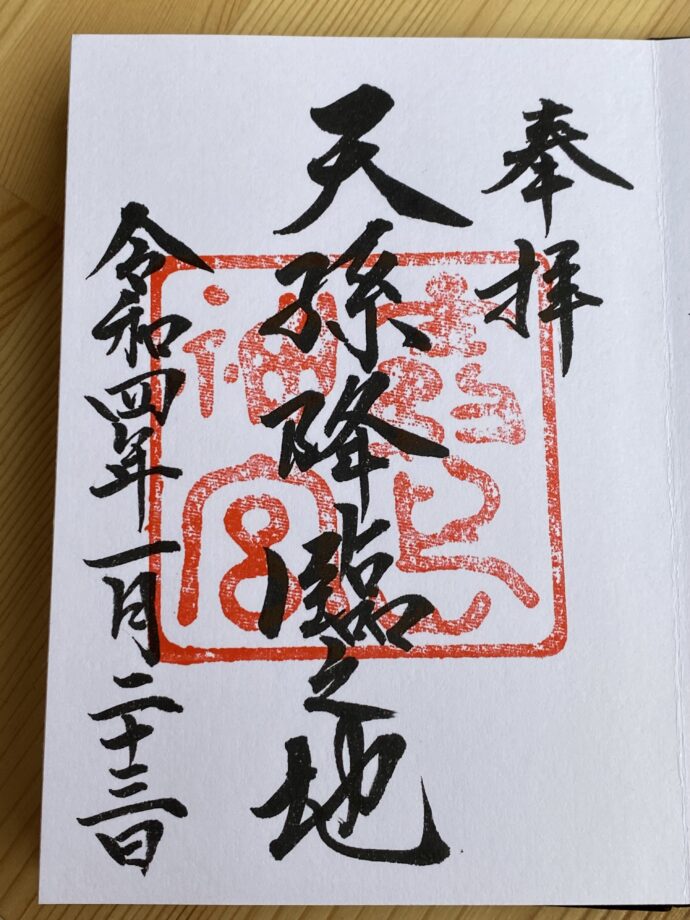 奉拝
天孫降臨之地
霧島
神宮
令和四年一月二十三日